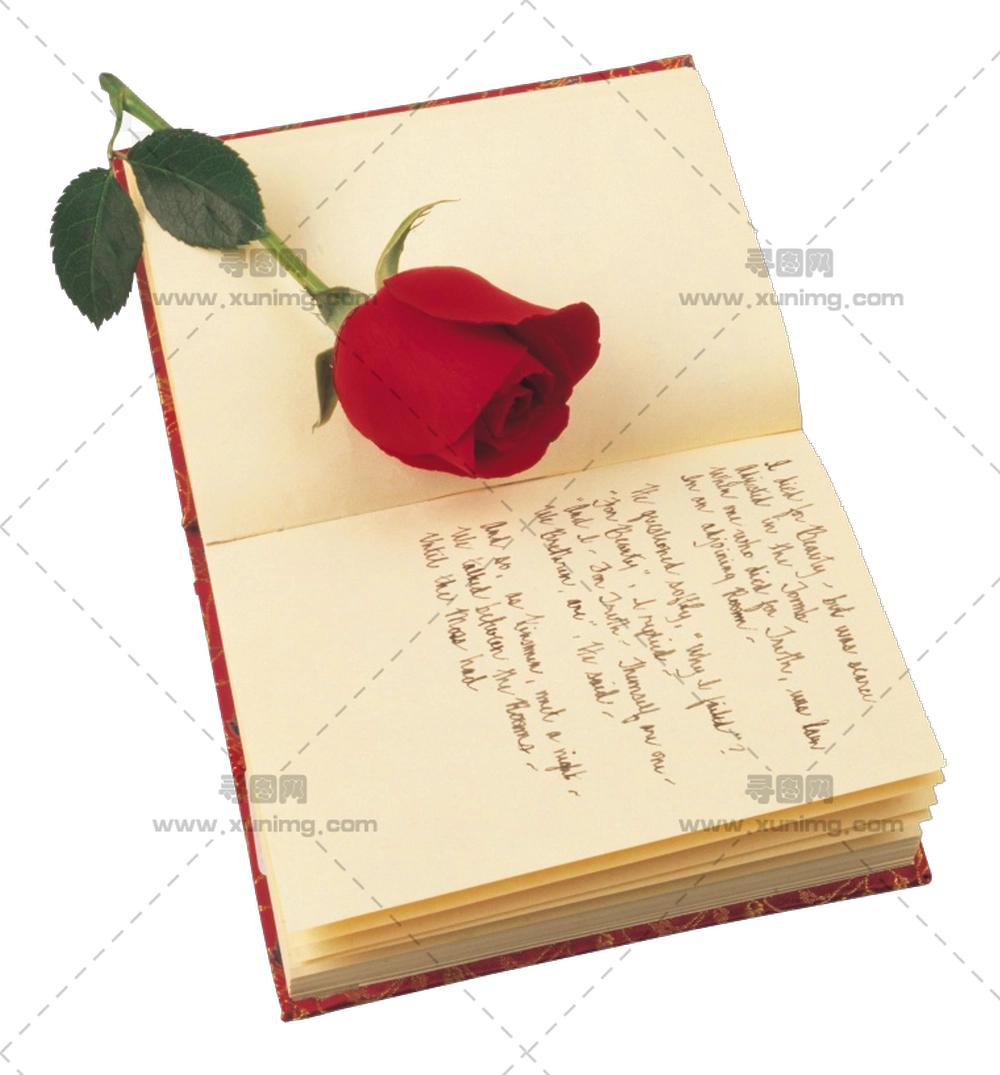 I died for Beauty - but was scarce
Adjusted in the Tomb
When one who died for Truth, was lain
In an adjoining Room -
He questioned softly, "Why I failed"?
"For Beauty", I replied -
"And I - For Truth - Themself are one -
We Brethren, are", He said -
And so, as Kinsmen, met a night -
We talked between the Rooms -
Until the Moss had
寻图网
www.xunimg.com
寻图网
www.xunimg.com
寻图网
www.xunimg.com
寻图网
www.xunimg.com